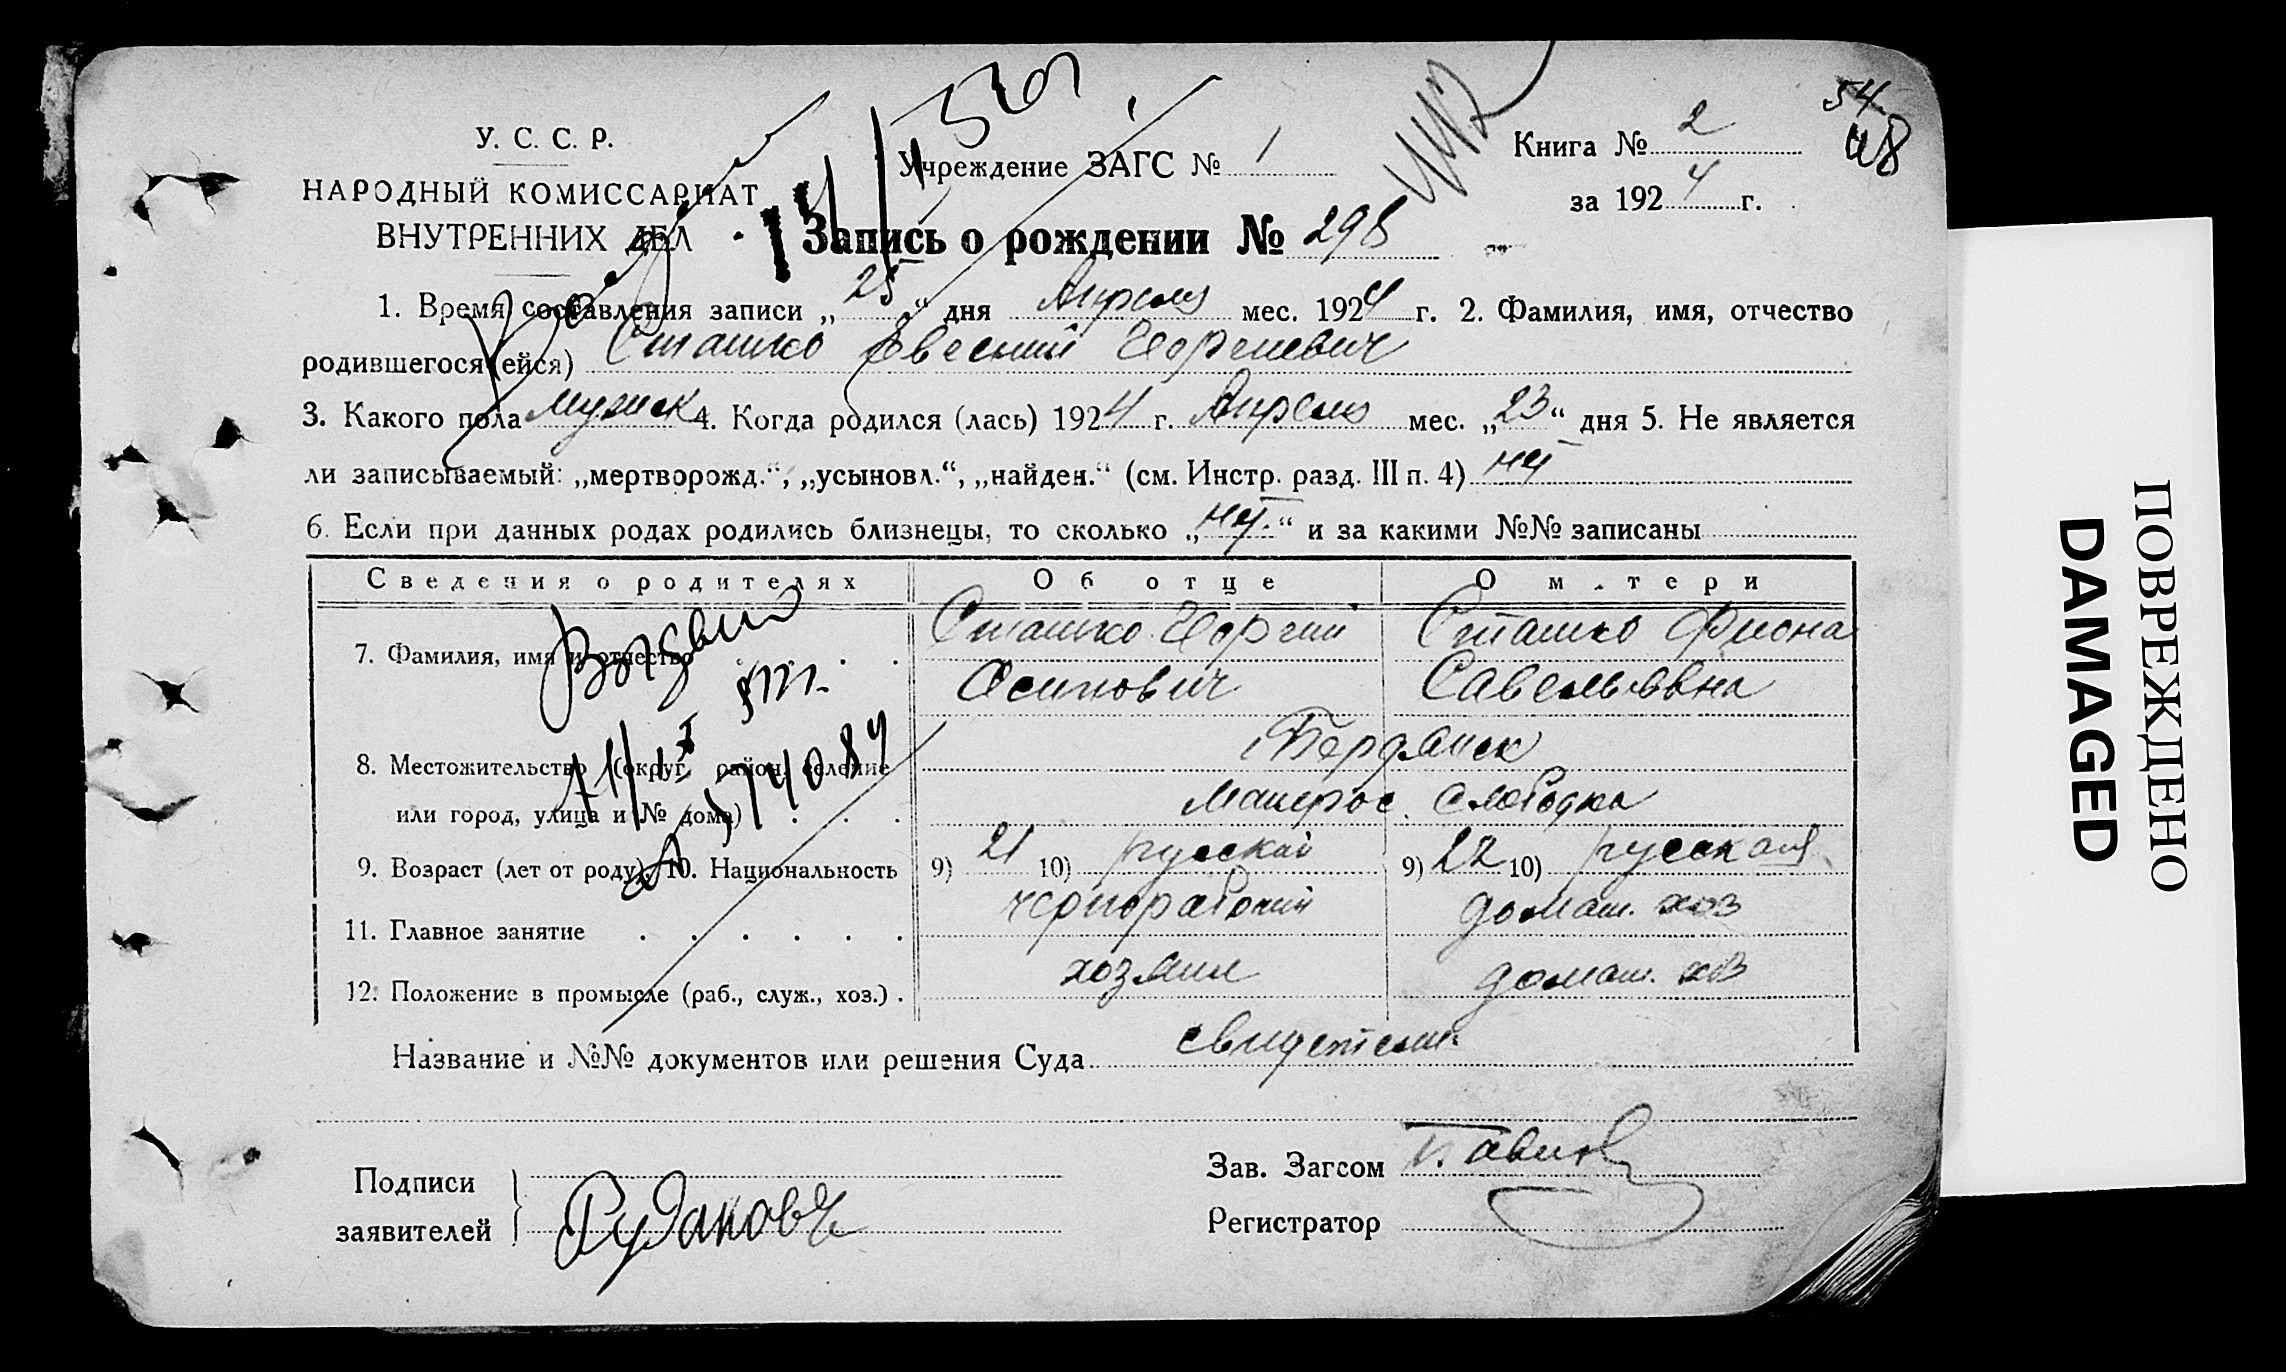 54
48
У. С. С. Р.
НАРОДНЫЙ КОМИССАРИАТ
ВНУТРЕННИХ ДЕЛ
Учреждение ЗАГС № 1
Книга № 2
за 1924 г.
Запись о рождении № 298
1. Время составления записи „25“ дня Апреля мес. 1924 г. 2. Фамилия, имя, отчество
родившегося (ейся) Сташко Евгений Георгиевич
3. Какого пола мужск 4. Когда родился (лась) 1924 г. Апреля мес. „23“ дня 5. Не является
ли записываемый: „мертворожд.“, „усыновл.“, „найден.“ (см. Инстр. разд. III п. 4) нет
6. Если при данных родах родились близнецы, то сколько „нет.“ и за какими №№ записаны
Сведения о родителях Об отце О м.тери
7. Фамилия, имя и отчество Сташко Георгий Сташко Фиона
Осипович Савельевна
8. Местожительство (округ, район, селение Бердянск
или город, улица и № дома) Матрос. слободка
9. Возраст (лет от роду). 10. Национальность 9) 21 10) русский 9) 22 10) русская
11. Главное занятие чернорабочий домаш. хоз
12. Положение в промысле (раб., служ., хоз.) хозяин домаш. хоз
Название и №№ документов или решения Суда свидетели
Подписи
заявителей
Рудакова
Зав. Загсом
Регистратор
ПОВРЕЖДЕНО
DAMAGED